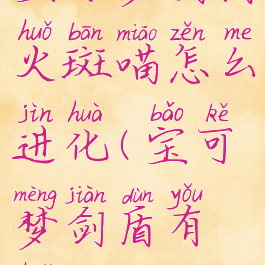 huǒ bān miāo zěn me
火斑喵怎么
jìn huà bǎo kě
进化(宝可
mèng jiàn dùn yǒu
梦剑盾有